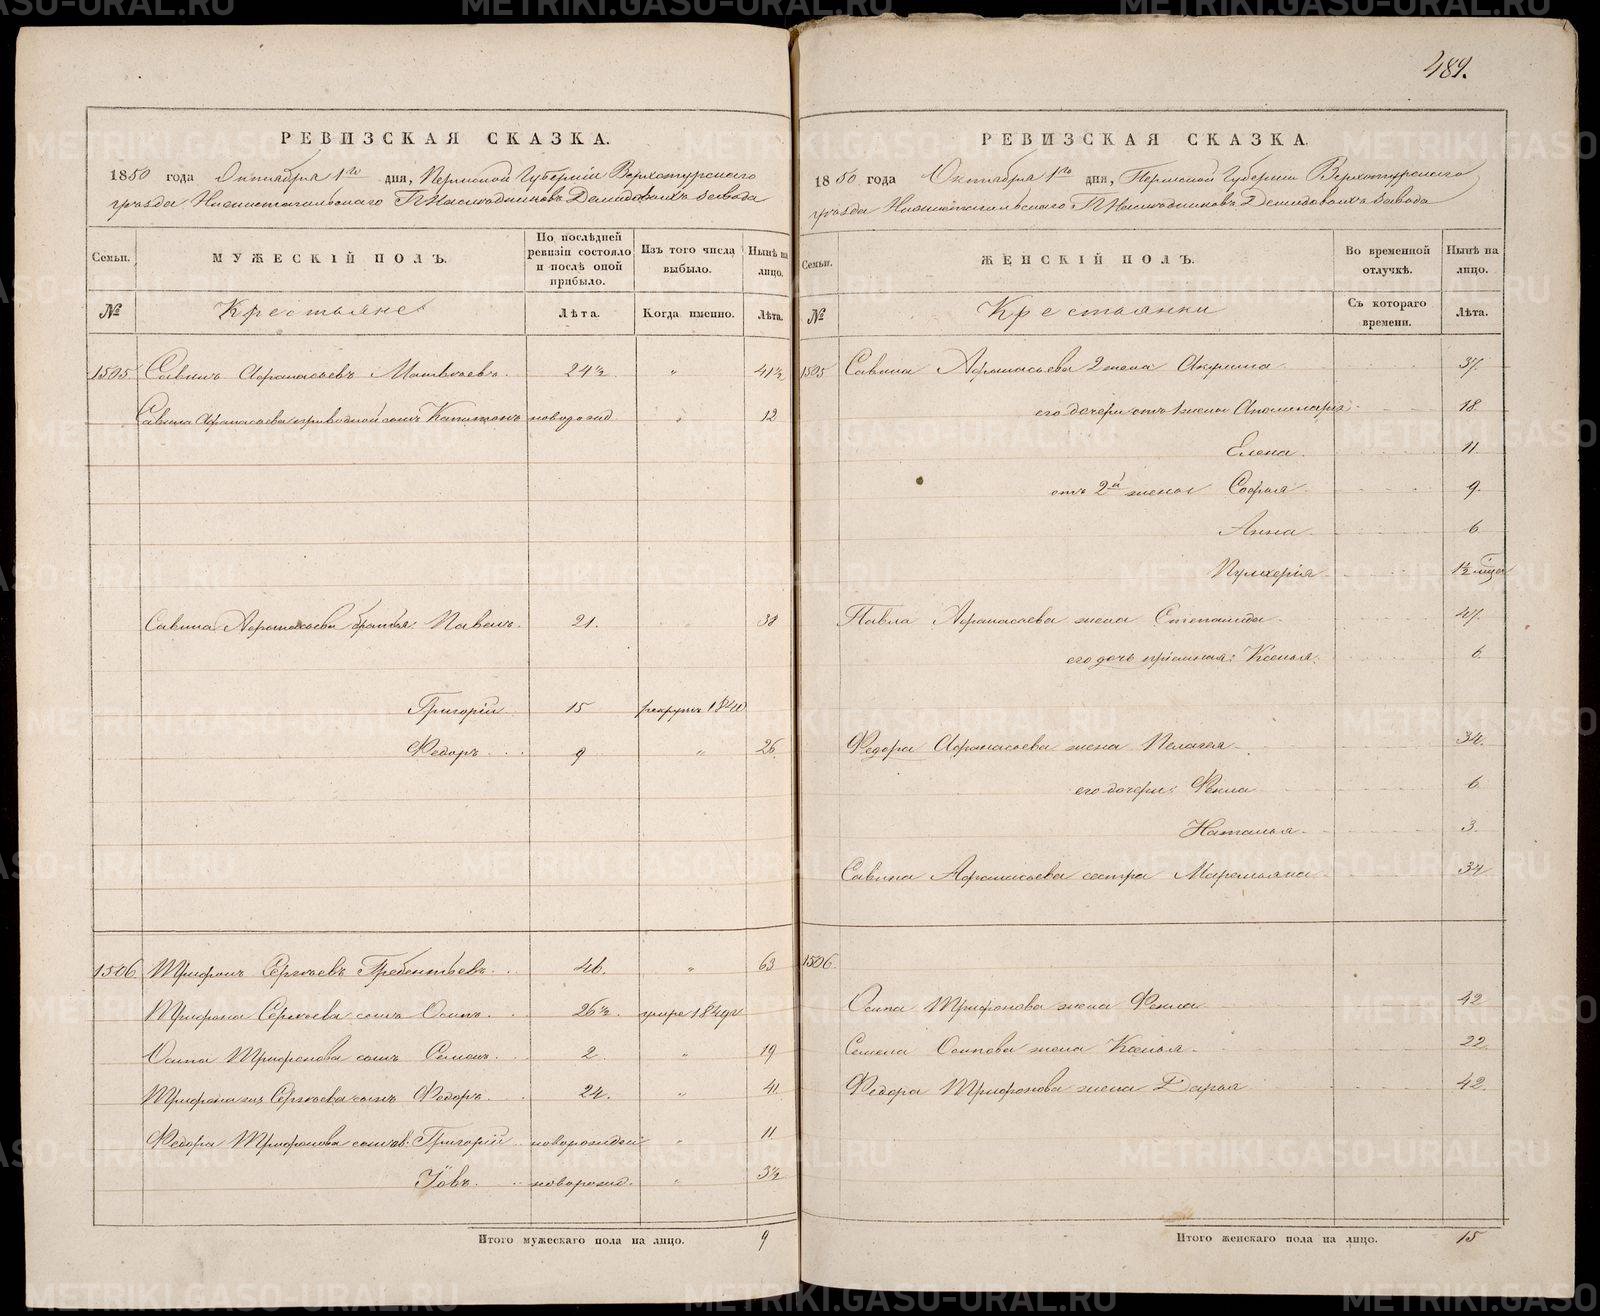 489.
РЕВИЗСКАЯ СКАЗКА.
1850 года Октября 1го дня, Пермской Губернии Верхотурскаго
уезда Нижнетагильскаго Г.г. Наследниковъ Демидовыхъ завода
Семьи. МУЖЕСКІЙ ПОЛЪ. По последней ревизіи состояло и после оной прибыло. Изъ того числа выбыло. Ныне на лицо.
№ Крестьяне Лѣта. Когда именно. Лѣта.
1505 Савинъ Афанасьевъ Матвеевъ. 24½ " 41½
Савина Афанасьева приводной сынъ Капитонъ новорожд. " 12
Савина Афанасьева братья: Павелъ. 21. 38
Григорій 15 рекрутъ 1840
Федоръ 9 " 26.
1506 Трифонъ Сергеевъ Гребентьевъ. 46. " 63
Трифона Сергеева сынъ Осипъ. 26½. умре 1849г
Осипа Трифонова сынъ Семенъ. 2 " 19
Трифона Сергеева сынъ Федоръ. 24. " 41.
Федора Трифонова сынъ: Григорій новорожден " 11
Іовъ. новорожд. " 3½
Итого мужескаго пола на лицо. 9
РЕВИЗСКАЯ СКАЗКА.
1850 года Октября 1го дня, Пермской Губернии Верхотурскаго
уезда Нижнетагильскаго Г.г. Наследниковъ Демидовыхъ завода
Семьи. ЖЕНСКІЙ ПОЛЪ. Во временной отлучкѣ. Нынѣ на лицо.
№ Крестьянки Съ котораго времени. Лѣта.
1505 Савина Афанасьева 2 жена Акулина 37.
его дочери отъ 1 жены Аполинария 18
Елена. 11.
отъ 2й жены Софья 9.
Анна 6
Пулхерія 1½
Павла Афанасьева жена Степанида 47.
его дочь приемная: Ксенья. 6
Федора Афанасьева жена Пелагея 34.
его дочери: Фекла 6
Наталья 3.
Савина Афанасьева сестра Маремьяна 34
1506.
Осипа Трифонова жена Фекла 42
Семена Осипова жена Ксенья. 22.
Федора Трифонова жена Дарья 42.
Итого женскаго пола на лицо. 15
METRIKI.GASO-URAL.RU